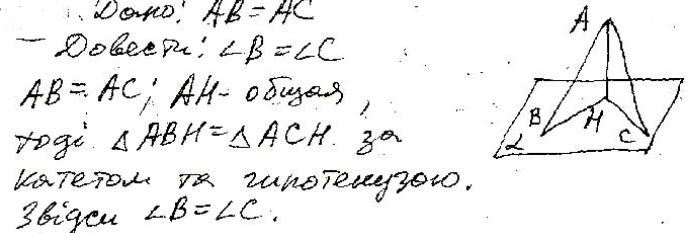 Дано: AB = AC
Довести: ∠B = ∠C
AB = AC; AH - общая,
тоді △ABH = △ACH за
катетом та гипотенузою.
Звідси ∠B = ∠C.
A
B
H
C
α